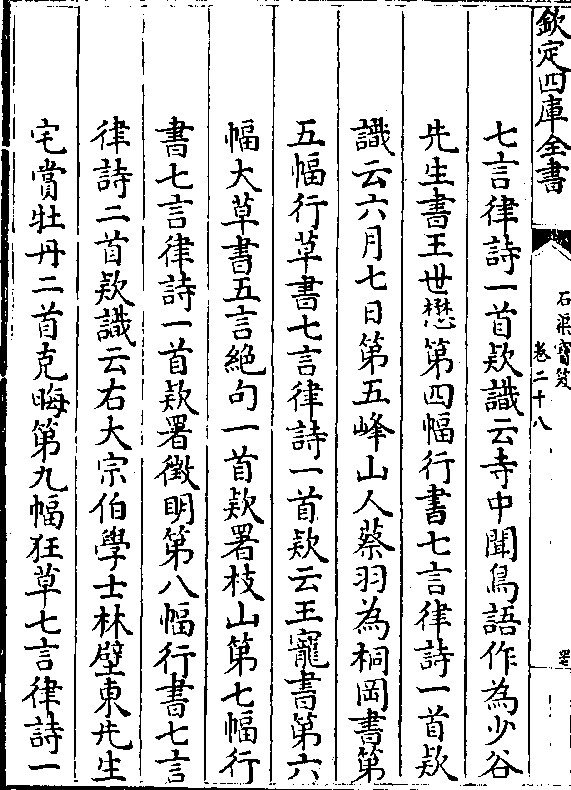 欽定四庫全書
石渠寳笈
卷二十八
七言律詩一首欵識云寺中聞鳥語作為少谷
先生書王世懋第四幅行書七言律詩一首欵
識云六月七日第五峰山人蔡羽為桐岡書第
五幅行草書七言律詩一首欵云王寵書第六
幅大草書五言絶句一首欵署枝山第七幅行
書七言律詩一首欵署徵明第八幅行書七言
律詩二首欵識云右大宗伯學士林壁東先生
宅賞牡丹二首克晦第九幅狂草七言律詩一